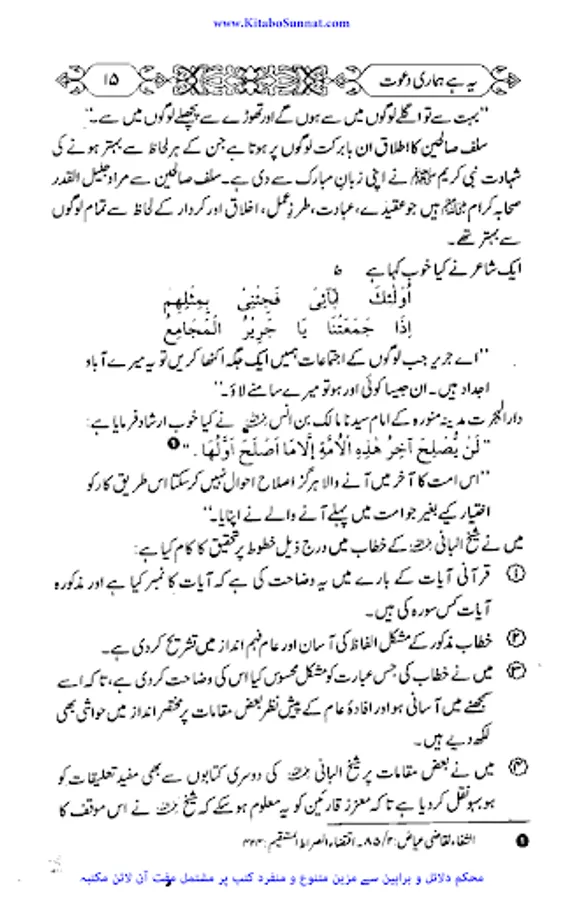 www.KitaboSunnat.com
یہ ہے ہماری دعوت
۱۵
’’بہت سے تو اگلے لوگوں میں سے ہوں گے اور تھوڑے سے پچھلے لوگوں میں سے۔‘‘
سلف صالحین کا اطلاق ان بابرکت لوگوں پر ہوتا ہے جن کے ہر لحاظ سے بہتر ہونے کی
شہادت نبی کریم ﷺ نے اپنی زبانِ مبارک سے دی ہے۔ سلف صالحین سے مراد جلیل القدر
صحابہ کرام ہیں جو عقیدے، عبادت، طرزِ عمل، اخلاق اور کردار کے لحاظ سے تمام لوگوں
سے بہتر تھے۔
ایک شاعر نے کیا خوب کہا ہے
أُولٰئِكَ آبَائِیْ فَجِئْنِیْ بِمِثْلِهِمْ
إِذَا جَمَعَتْنَا يَا جَرِيْرُ الْمَجَامِعُ
’’اے جریر جب لوگوں کے اجتماعات ہمیں ایک جگہ اکٹھا کریں تو یہ میرے آباو
اجداد ہیں۔ ان جیسا کوئی اور ہو تو میرے سامنے لاؤ۔‘‘
دارالہجرت مدینہ منورہ کے امام سیدنا مالک بن انس رحمہ اللہ نے کیا خوب ارشاد فرمایا ہے:
’’لَنْ يُّصْلِحَ آخِرَ هٰذِهِ الْاُمَّةِ إِلَّا مَا اَصْلَحَ اَوَّلُهَا .‘‘ ❶
’’اس امت کا آخر میں آنے والا ہرگز اصلاح احوال نہیں کر سکتا اس طریق کار کو
اختیار کیے بغیر جو امت میں پہلے آنے والے نے اپنایا۔‘‘
میں نے شیخ البانی رحمہ اللہ کے خطاب میں درج ذیل خطوط پر تحقیق کا کام کیا ہے:
① قرآنی آیات کے بارے میں یہ وضاحت کی ہے کہ آیات کا نمبر کیا ہے اور مذکورہ
آیات کس سورہ کی ہیں۔
② خطاب مذکور کے مشکل الفاظ کی آسان اور عام فہم انداز میں تشریح کر دی ہے۔
③ میں نے خطاب کی جس عبارت کو مشکل محسوس کیا اس کی وضاحت کر دی ہے، تاکہ اسے
سمجھنے میں آسانی ہو اور افادۂ عام کے پیش نظر بعض مقامات پر مختصر انداز میں حواشی بھی
لکھ دیے ہیں۔
④ میں نے بعض مقامات پر شیخ البانی رحمہ اللہ کی دوسری کتابوں سے بھی مفید تعلیقات کو
ہو بہو نقل کر دیا ہے تاکہ معزز قارئین کو یہ معلوم ہو سکے کہ شیخ رحمہ اللہ نے اس موقف کا
❶ الشفاء لقاضی عیاض: ۲/ ۸۵۔ اقتضاء الصراط المستقیم:
محکم دلائل و براہین سے مزین متنوع و منفرد کتب پر مشتمل مفت آن لائن مکتبہ